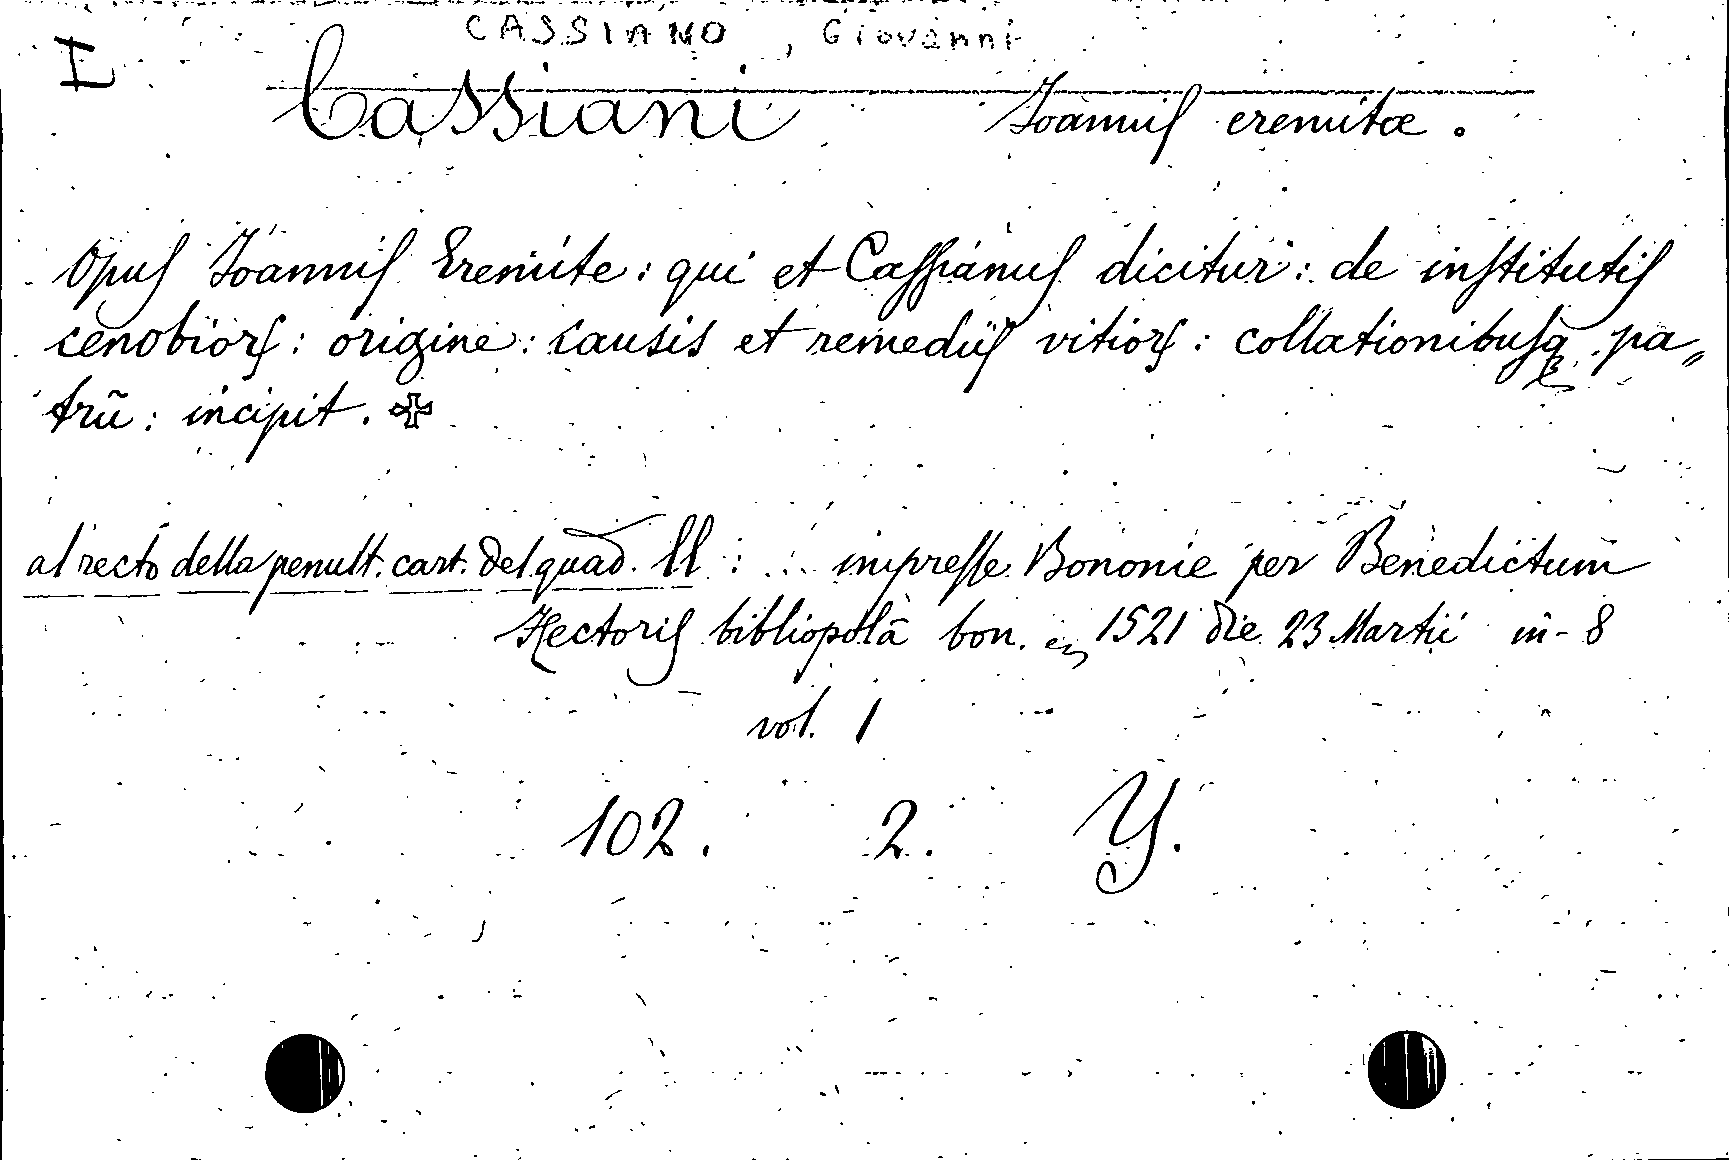 CASSIANO, Giovanni
I
Cassiani Joannis eremitæ.
Opus Joannis Eremite: qui et Cassianus dicitur: de institutis
cenobioꝝ: origine: causis et remediis vitioꝝ: collationibusqꝫ pa„
trũ: incipit. ✠
al recto della penult. cart. del quad. ll: impresse Bononie per Benedictum
Hectoris bibliopolā bon. 1521 die 23 Martii in-8
vol. 1
102. 2. Y.